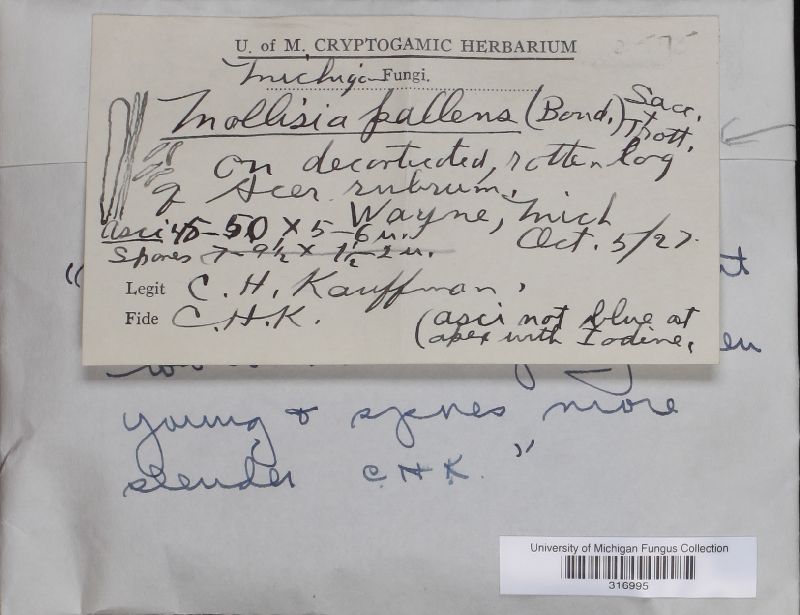 U. of M. CRYPTOGAMIC HERBARIUM
Michigan Fungi.
Mollisia pallens (Boud.) Sacc. + Trott.
On decorticated, rotten log
of Acer rubrum.
Wayne, Mich
Asci 45-50 X 5-6 u.
Oct. 5/27.
Spores 7-9½ X 1½-2 u.
Legit C. H. Kauffman,
Fide C.H.K.
(asci not blue at
apex with Iodine.
"
young & spores more
slender C.H.K."
University of Michigan Fungus Collection
316995